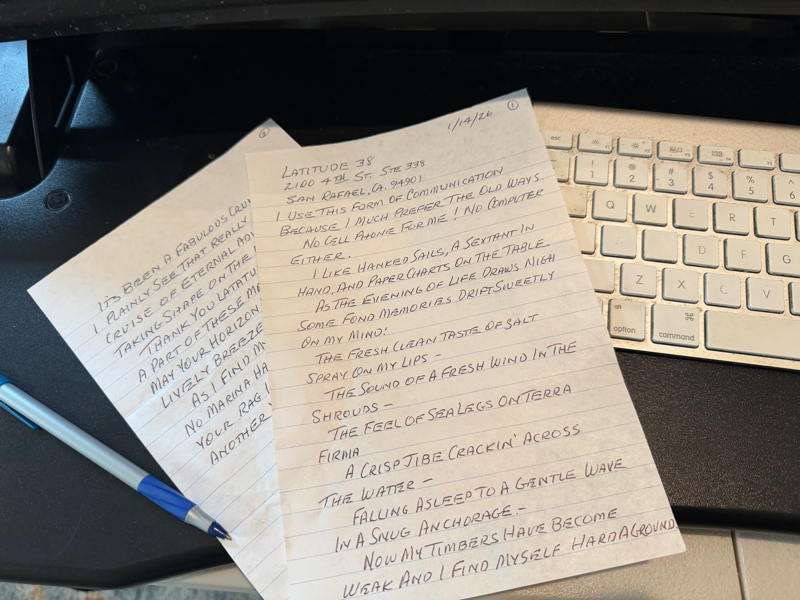 1/14/26 1
LATITUDE 38
2100 4TH ST. STE 338
SAN RAFAEL, CA. 94901
I USE THIS FORM OF COMMUNICATION
BECAUSE I MUCH PREFER THE OLD WAYS.
NO CELL PHONE FOR ME! NO COMPUTER
EITHER.
I LIKE HANKED SAILS, A SEXTANT IN
HAND, AND PAPER CHARTS ON THE TABLE
AS THE EVENING OF LIFE DRAWS NIGH
SOME FOND MEMORIES DRIFT SWEETLY
ON MY MIND!
THE FRESH CLEAN TASTE OF SALT
SPRAY ON MY LIPS –
THE SOUND OF A FRESH WIND IN THE
SHROUDS –
THE FEEL OF SEA LEGS ON TERRA
FIRMA
A CRISP JIBE CRACKIN' ACROSS
THE WATTER –
FALLING ASLEEP TO A GENTLE WAVE
IN A SNUG ANCHORAGE –
NOW MY TIMBERS HAVE BECOME
WEAK AND I FIND MYSELF HARD AGROUND
2
ITS BEEN A FABULOUS
I PLAINLY SEE THAT REALLY
CRUISE OF ETERNAL
TAKING SHAPE ON THE
THANK YOU
A PART OF THESE
MAY YOUR
LIVELY
AS I FIND
NO MARINA
YOUR RAG
ANOTHER
esc
! 1
@ 2
# 3
$ 4
% 5
6
Q W E R T
A S D F G
Z X C V
alt option
command